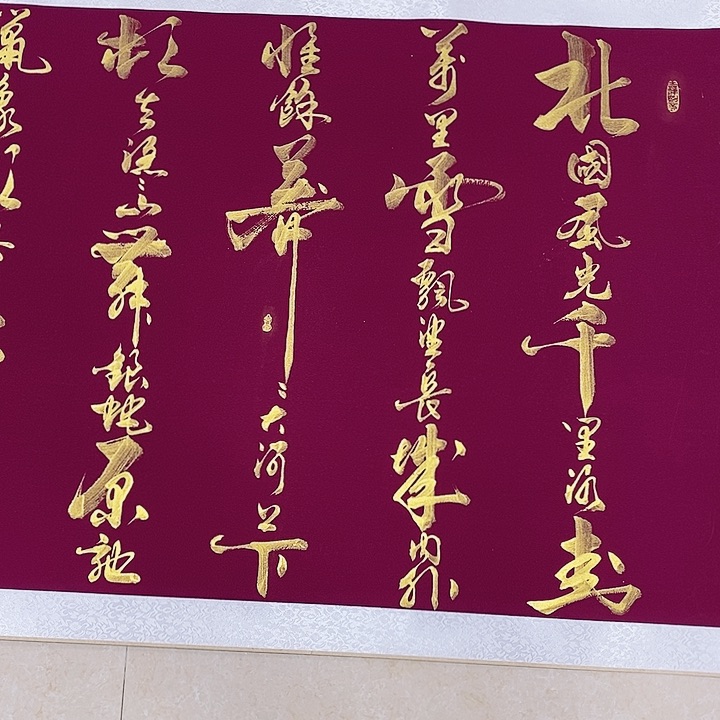 北國風光千里冰封
萬里雪飄望長城內外
惟餘莽々大河上下
頓失滔々山舞銀蛇原馳
蠟象